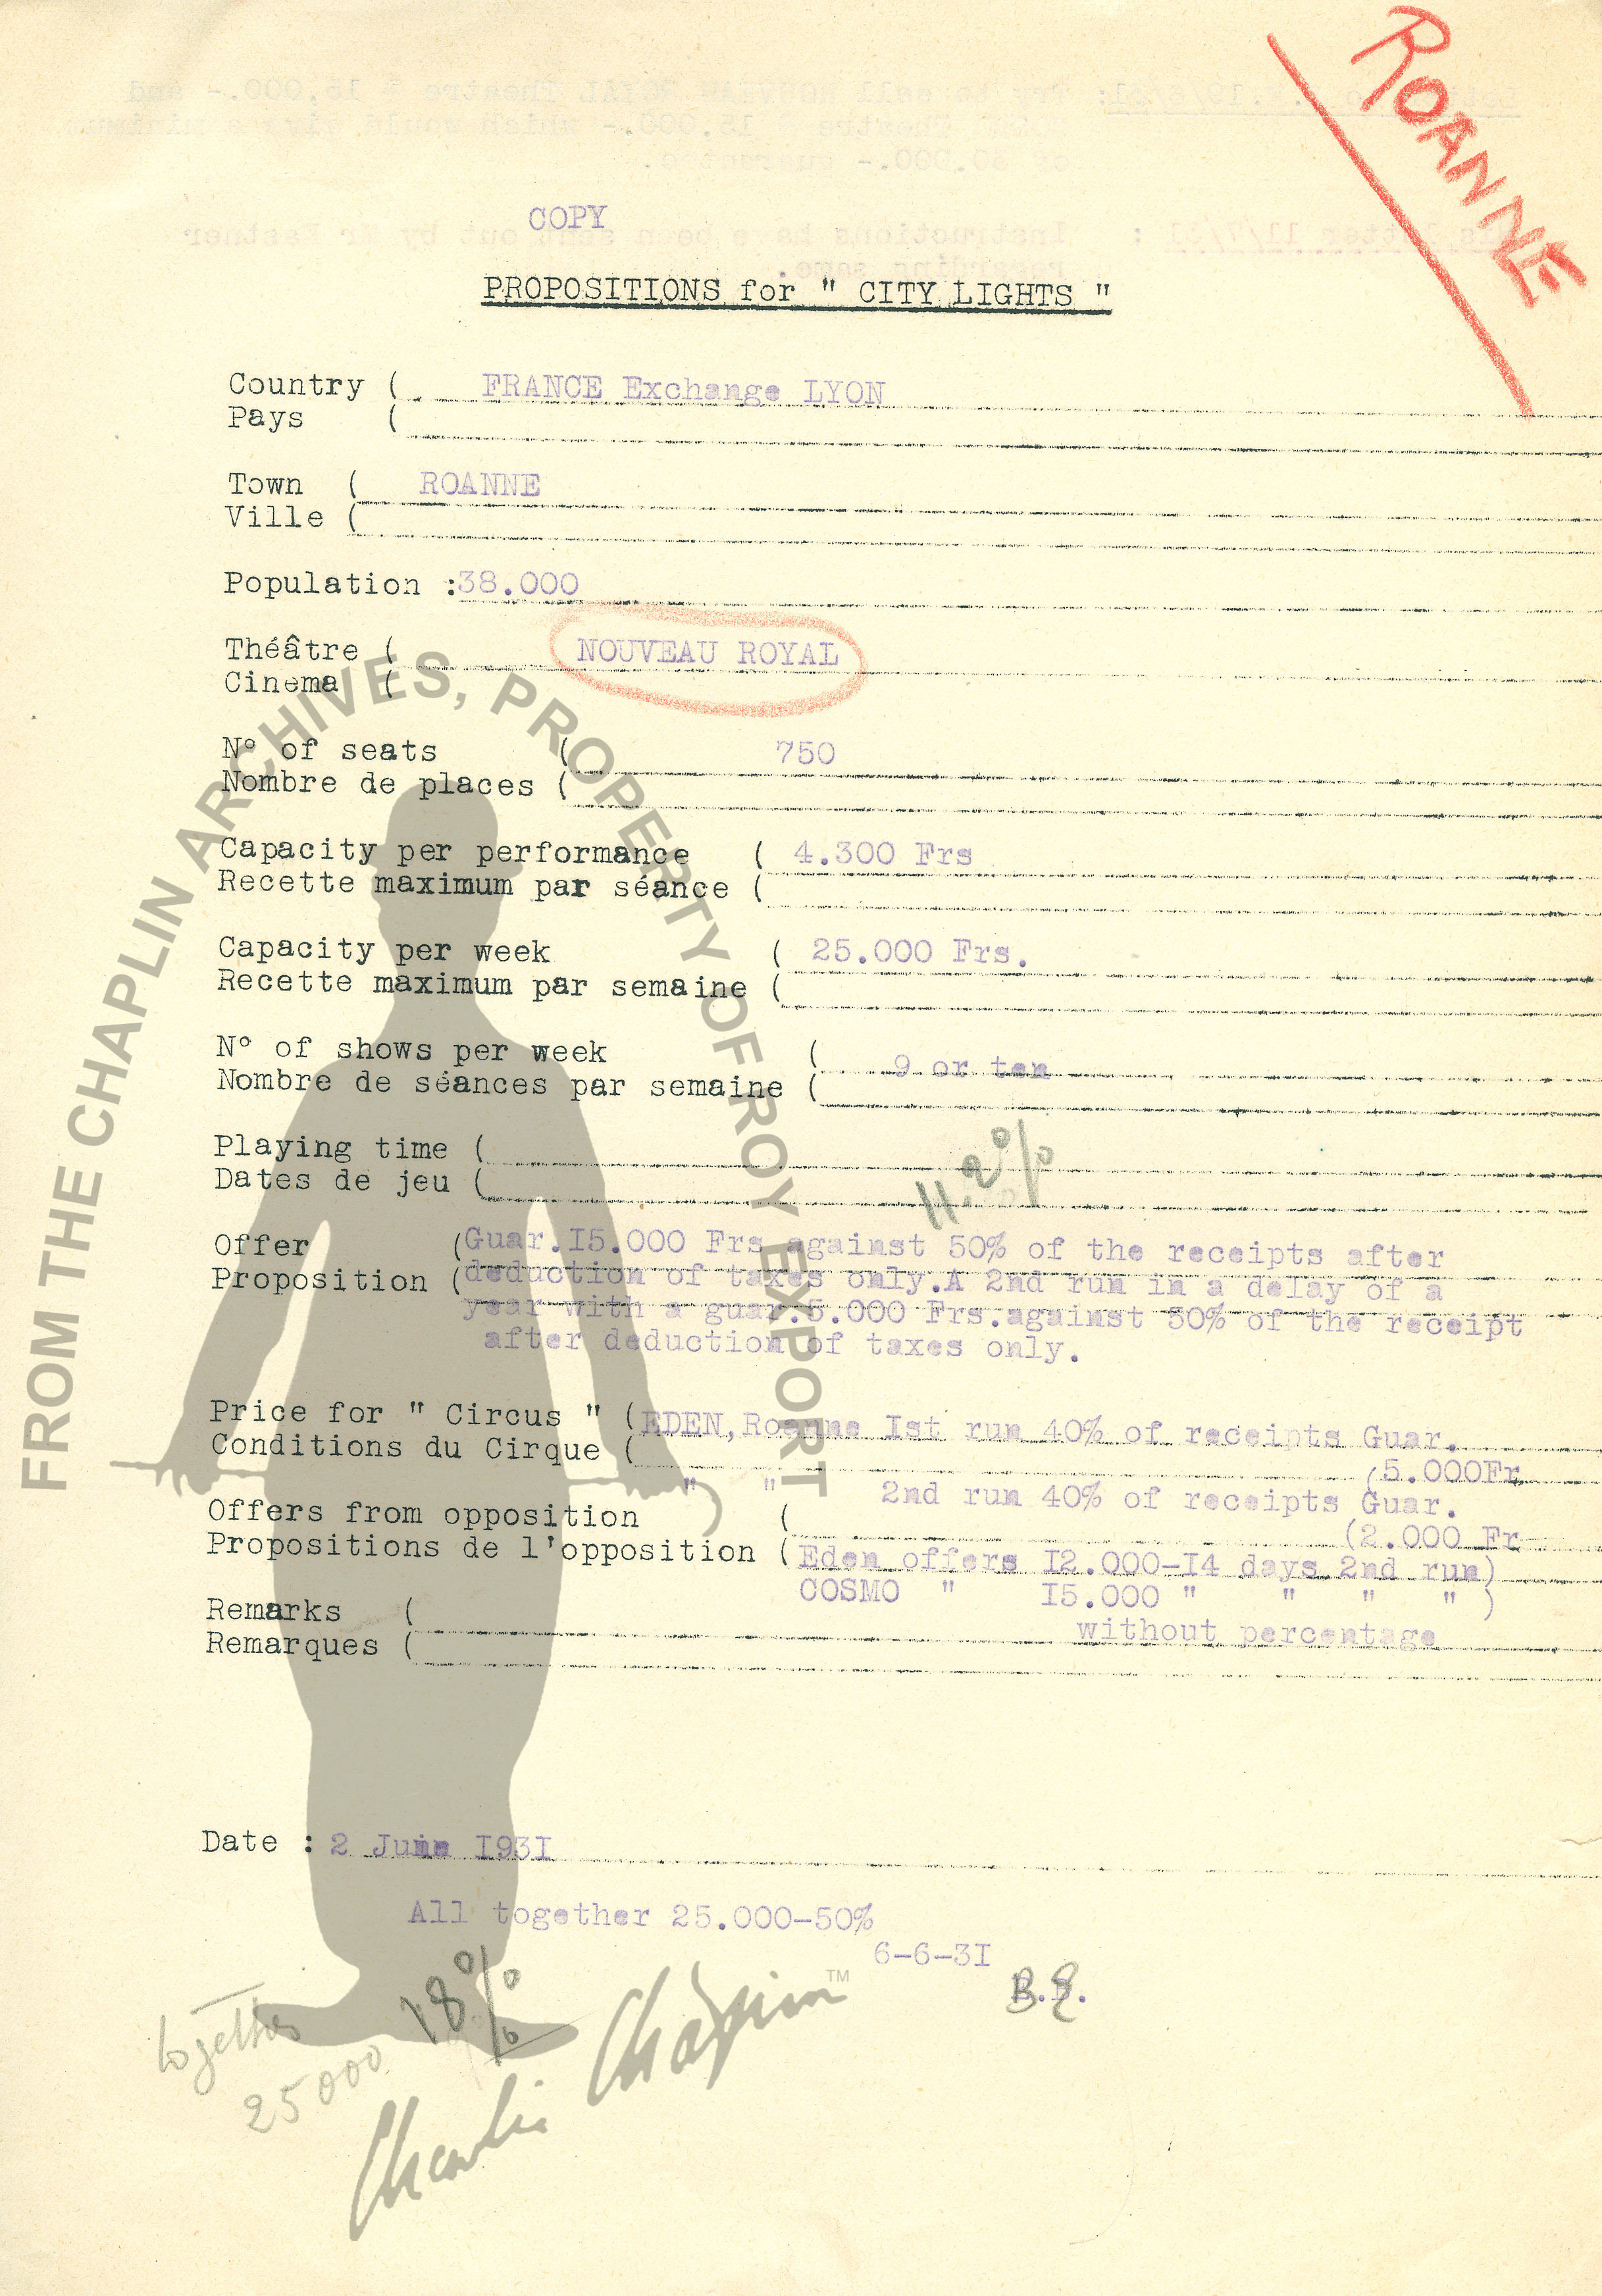 ROANNE
COPY
PROPOSITIONS for " CITY LIGHTS "
Country ( FRANCE Exchange LYON
Pays (
Town ( ROANNE
Ville (
Population :38.000
Théâtre ( NOUVEAU ROYAL
Cinema (
N° of seats ( 750
Nombre de places (
Capacity per performance ( 4.300 Frs
Recette maximum par séance (
Capacity per week ( 25.000 Frs.
Recette maximum par semaine (
N° of shows per week ( 9 or ten
Nombre de séances par semaine (
Playing time (
Dates de jeu (
11.2%
Offer (Guar.I5.000 Frs against 50% of the receipts after
Proposition (deduction of taxes only.A 2nd run in a delay of a
year with a guar.5.000 Frs.against 50% of the receipt
after deduction of taxes only.
Price for " Circus " (EDEN,Roanne Ist run 40% of receipts Guar.
Conditions du Cirque ( (5.000Fr
" " 2nd run 40% of receipts Guar.
Offers from opposition ( (2.000 Fr
Propositions de l'opposition (Eden offers I2.000-I4 days 2nd run)
COSMO " I5.000 " " " " )
Remarks (
Remarques ( without percentage
Date : 2 Juin I93I
All together 25.000-50%
6-6-3I
B.E.
18%
together
25000
FROM THE CHAPLIN ARCHIVES, PROPERTY OF ROY EXPORT
Charlie Chaplin™